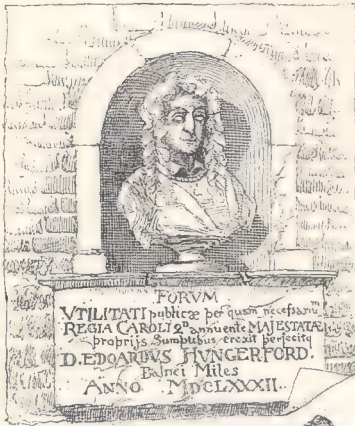 FORUM
UTILITATI publicæ per quam necessariū
REGIA CAROLI 2º annuente MAJESTATÆ
proprijs Sumptibus erexit perfecitq
D. EDOARDVS HUNGERFORD.
Balnei Miles
ANNO MDCLXXXII.